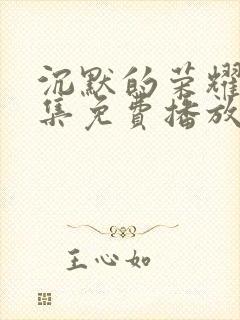 沉默的荣耀
集免费播放
王心如